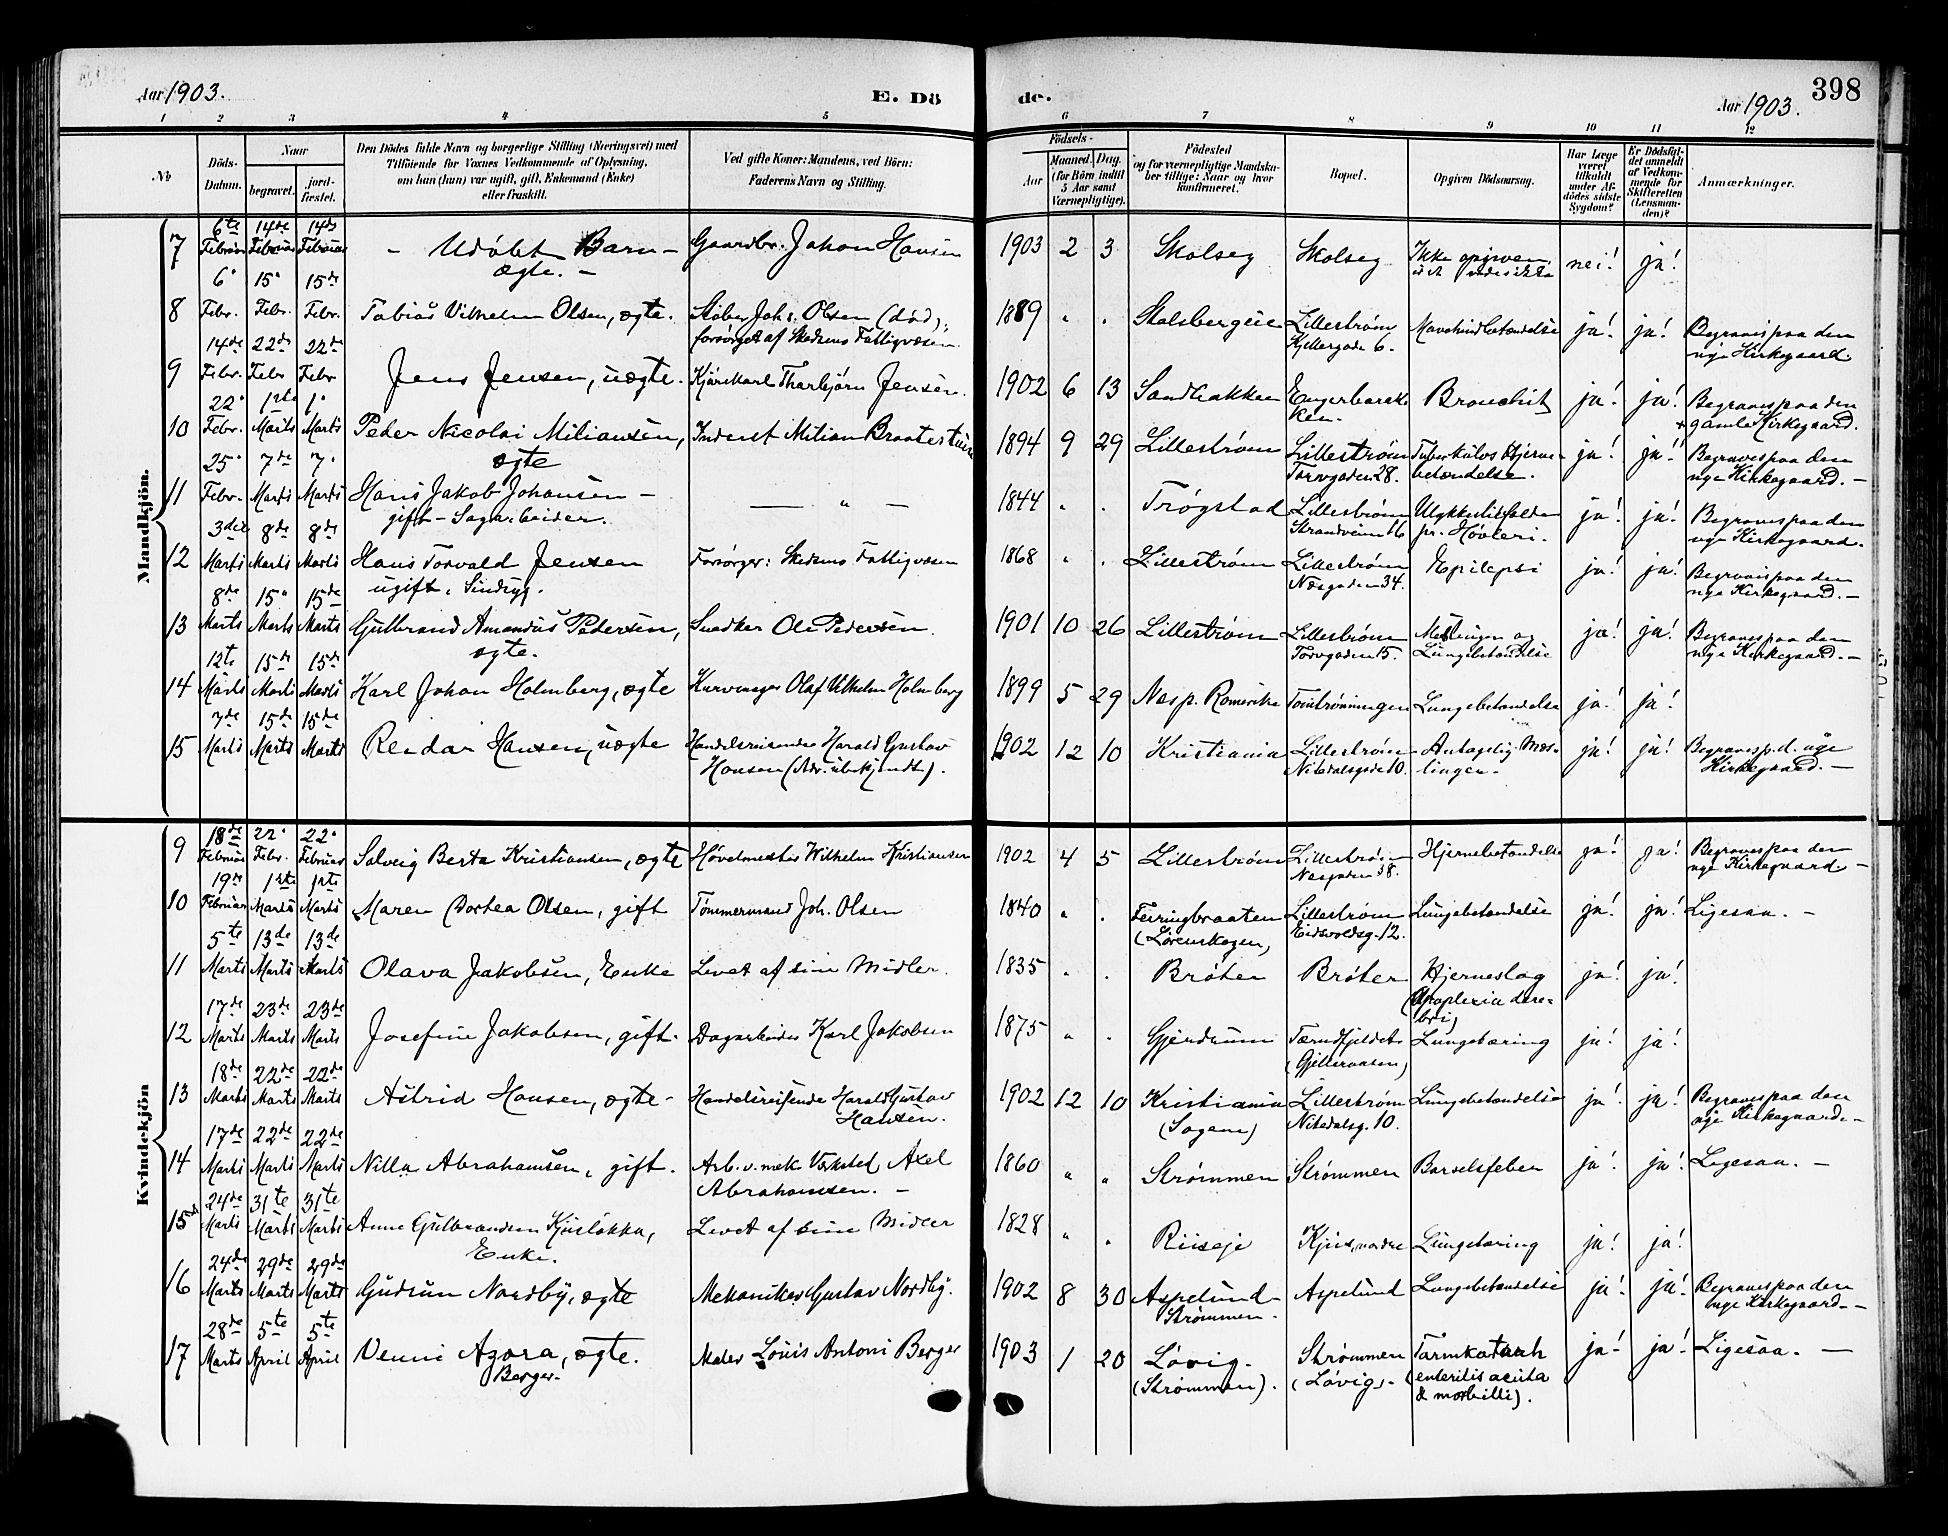 Aar 1903. E. Dö
de. Aar 1903. 398
1 2 3 4 5 6 7 8 9 10 11 12
No
Döds-
Datum.
Naar
begravet. jord-
fæstet.
Den Dödes fulde Navn og borgerlige Stilling (Næringsvei) med
Tilföiende for Voxnes Vedkommende af Oplysning,
om han (hun) var ugift, gift, Enkemand (Enke)
eller fraskilt.
Ved gifte Koner: Mandens, ved Börn:
Faderens Navn og Stilling.
Födsels-
Aar Maaned. Dag.
(for Börn indtil
5 Aar samt
Værnepligtige).
Födested
og for værnepligtige Mandska-
ber tillige: Naar og hvor
konfirmeret.
Bopæl.
Opgiven Dödsaarsag.
Har Læge
været
tilkaldt
under Af-
dödes sidste
Sygdom?
Er Dödsfal-
det anmeldt
af Vedkom-
mende for
Skifteretten
(Lensman-
den)?
Anmærkninger.
Mandkjön.
6te 14de 14de
7 Februar Februar Februar - Udøbt Barn - Gaardbr. Johan Hansen 1903 2 3 Skolseg Skolseg Ikke opgiven, nei! ja!
ægte. -
6' 15' 15de
8 Febr. Febr. Febr. Tobias Vilhelm Olsen, ægte. Støber Johs. Olsen (død), 1889 " " Stalsbergeie Lillestrøm Mavehindebetændelse ja! ja! Begraves paa den
forsørget af Skedsmo Fattigvæsen. Kjellergade 6. nye Kirkegaard.
14de 22de 22de
9 Febr. Febr Febr Jens Jensen, uægte. Kjørekarl Thorbjørn Jensen. 1902 6 13 Sandbakken Bronchit ja! ja! Begraves paa den
gamle Kirkegaard.
22' 1ste 1'
10 Febr. Marts Marts Peder Nicolai Miliansen, Inderst Milian Braatestuen 1894 9 29 Lillestrøm Lillestrøm Tuberkuløs Hjerne- ja! ja! Begraves paa den
ægte Torvgaden 28. betændelse. nye Kirkegaard. -
25' 7de 7'
11 Febr. Marts Marts Hans Jakob Johansen - — " — 1844 " " Trøgstad Lillestrøm Ulykkestilfælde ja! ja! Begraves paa den
gift - Sagarbeider. Strandveien 16 pr. Høvleri. nye Kirkegaard.
3die 8de 8de
12 Marts Marts Marts Hans Torvald Jensen Forsørger: Skedsmo Fattigvæsen 1868 " " Lillestrøm Lillestrøm Epilepsi ja! ja! Begraves paa den
ugift, Sindsyg. Næsgaden 34. nye Kirkegaard. -
8de 15' 15de
13 Marts Marts Marts Gulbrand Amandus Pedersen, Snedker Ole Pedersen. 1901 10 26 Lillestrøm Lillestrøm Meslinger og ja! ja! Begraves paa den
ægte. Torvgaden 15. Lungebetændelse nye Kirkegaard. -
12te 15de 15de
14 Marts Marts Marts Karl Johan Holmberg, ægte Kurvmager Olaf Vilhelm Holmberg 1899 5 29 Næs p. Romerike Lungebetændelse ja! ja!
7de 15de 15de
15 Marts Marts Marts Reidar Hansen, uægte Handelsreisende Harald Gustav 1902 12 10 Kristiania Lillestrøm Antagelig Mes- ja! ja! Begraves p. d. nye
Hansen (Adr. ubekjendt). Nitedalsgade 10. linger. Kirkegaard. -
Kvindekjön
18de 22' 22'
9 Februar Febr. Februar Solveig Berta Kristiansen, ægte Høvelmester Wilhelm Kristiansen 1902 4 5 Lillestrøm Lillestrøm Hjernebetændelse ja! ja! Begraves paa den
Næsgaden 38. nye Kirkegaard -
19de 1ste 1ste
10 Februar Marts Marts Maren Dortea Olsen, gift Tømmermand Joh. Olsen 1840 " " Feiringbraaten Lillestrøm Lungebetændelse ja! ja! Ligesaa. -
(Lørenskogen) Eidsvoldsg. 12.
5te 13de 13de
11 Marts Marts Marts Olava Jakobsen, Enke Levet af sine Midler. 1835 " " Brøter Brøter Hjerneslag ja! ja!
(Apoplexia cere-
bri)
17de 23de 23de
12 Marts Marts Marts Josefine Jakobsen, gift. Dagarbeider Karl Jakobsen 1875 " " Gjerdrum Tærudfjeldet Lungetæring ja! ja!
(Gjelleraasen)
18de 22de 22de
13 Marts Marts Marts Astrid Hansen, ægte - Handelsreisende Harald Gustav 1902 12 10 Kristiania Lillestrøm Lungebetændelse ja! ja! Begraves paa den
Hansen. (Sagene) Nitedalsg. 10. nye Kirkegaard. -
17de 22de 22de
14 Marts Marts Marts Nilla Abrahamsen, gift. Arb. v. mek. Værksted Axel 1860 " " Strømmen Strømmen Barselfeber ja! ja! Ligesaa. -
Abrahamsen. -
24de 31te 31te
15 Marts Marts Marts Anne Gulbrandsen Kjusløkka, Levet af sine Midler 1828 " " Riiseje Kjus, nordre Lungetæring ja! ja!
Enke.
24de 29de 29de
16 Marts Marts Marts Gudrun Nordby, ægte Mekaniker Gustav Nordby. 1902 8 30 Aspelund Aspelund Lungebetændelse ja! ja! Begraves paa den
Strømmen. nye Kirkegaard. -
28de 5te 5te
17 Marts April April Venni Azora, ægte. Maler Louis Antoni Berger 1903 1 20 Løvig. Strømmen Tarmkatarrh ja! ja! Ligesaa. —
Berger. (Strømmen). (Løvig). (enteritis acuta
& morbilli).